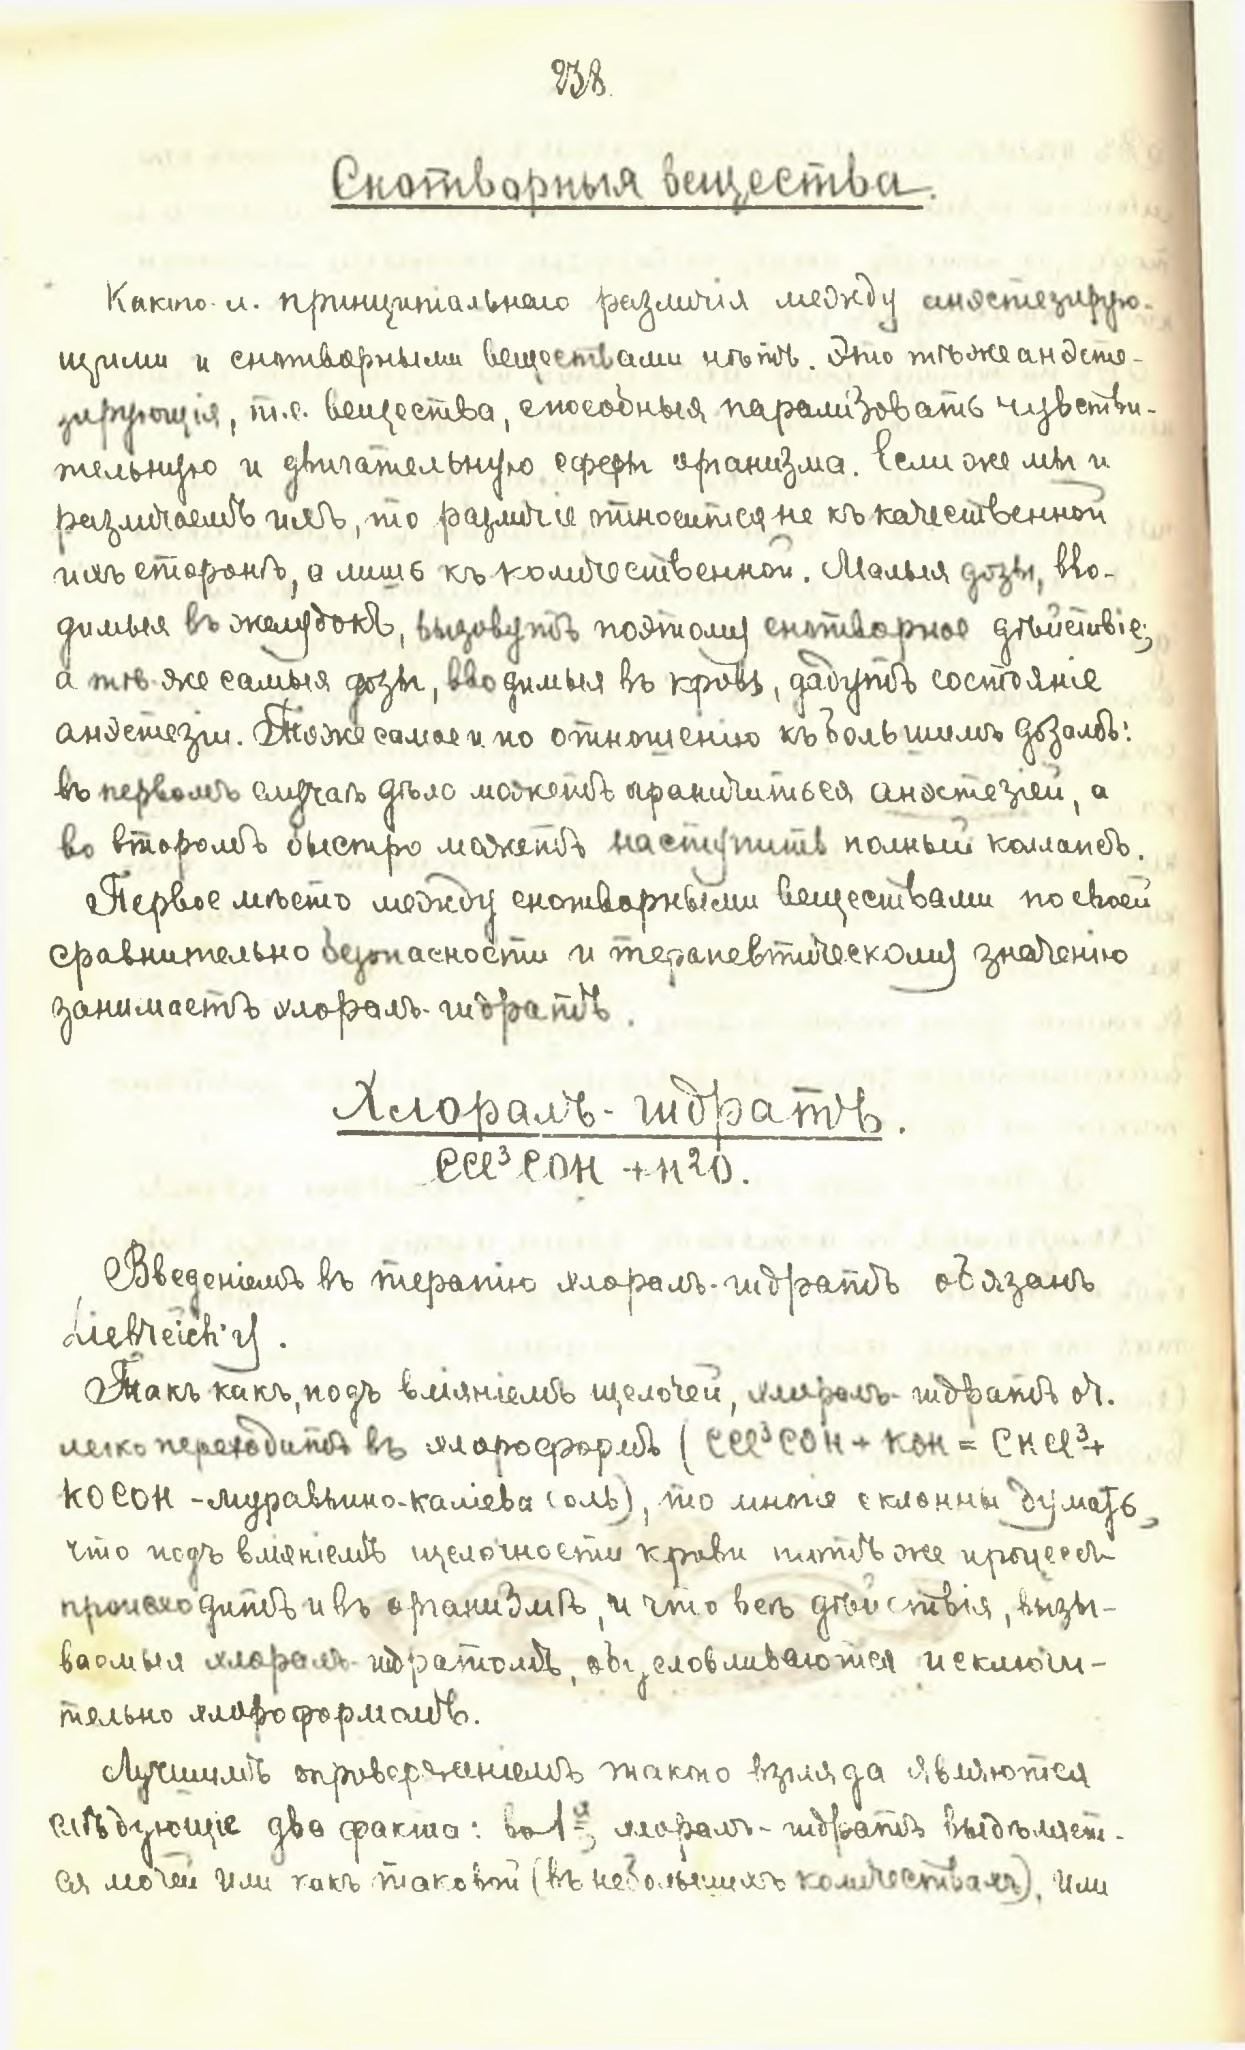 238.
Снотворныя вещества.
Какого л. принципіальнаго различія между анэстезирую-
щими и снотворными веществами нѣтъ. Это тѣ же анэсте-
зирующія, т.е. вещества, способныя парализовать чувстви-
тельную и двигательную сферы организма. Если же мы и
различаемъ ихъ, то различіе относится не къ качественной
ихъ сторонѣ, а лишь къ количественной. Малыя дозы, вво-
димыя въ желудокъ, вызовутъ поэтому снотворное дѣйствіе;
а тѣ же самыя дозы, вводимыя въ кровь, дадутъ состояніе
анэстезіи. Тоже самое и по отношенію къ большимъ дозамъ:
въ первомъ случаѣ дѣло можетъ ограничиться анэстезіей, а
во второмъ быстро можетъ наступить полный коллапсъ.
Первое мѣсто между снотворными веществами по своей
сравнительно безопасности и терапевтическому значенію
занимаетъ хлоралъ-гидратъ.
Хлоралъ-гидратъ.
CCl³COH + H²O.
Введеніемъ въ терапію хлоралъ-гидратъ обязанъ
Liebreich'у.
Такъ какъ, подъ вліяніемъ щелочей, хлоралъ-гидратъ оч.
легко переходитъ въ хлороформъ (CCl³COH + KOH = CHCl³ +
KOCOH - муравьино-каліева соль), то многіе склонны думать,
что подъ вліяніемъ щелочности крови тотъ же процессъ
происходитъ и въ организмѣ, и что всѣ дѣйствія, вызы-
ваемыя хлоралъ-гидратомъ, обусловливаются исключи-
тельно хлороформомъ.
Лучшимъ опроверженіемъ такого взгляда являются
слѣдующіе два факта: во 1ˣ, хлоралъ-гидратъ выдѣляет-
ся мочей или какъ таковой (въ небольшихъ количествахъ), или